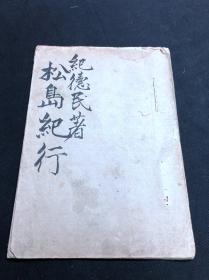 紀德民著
松島紀行